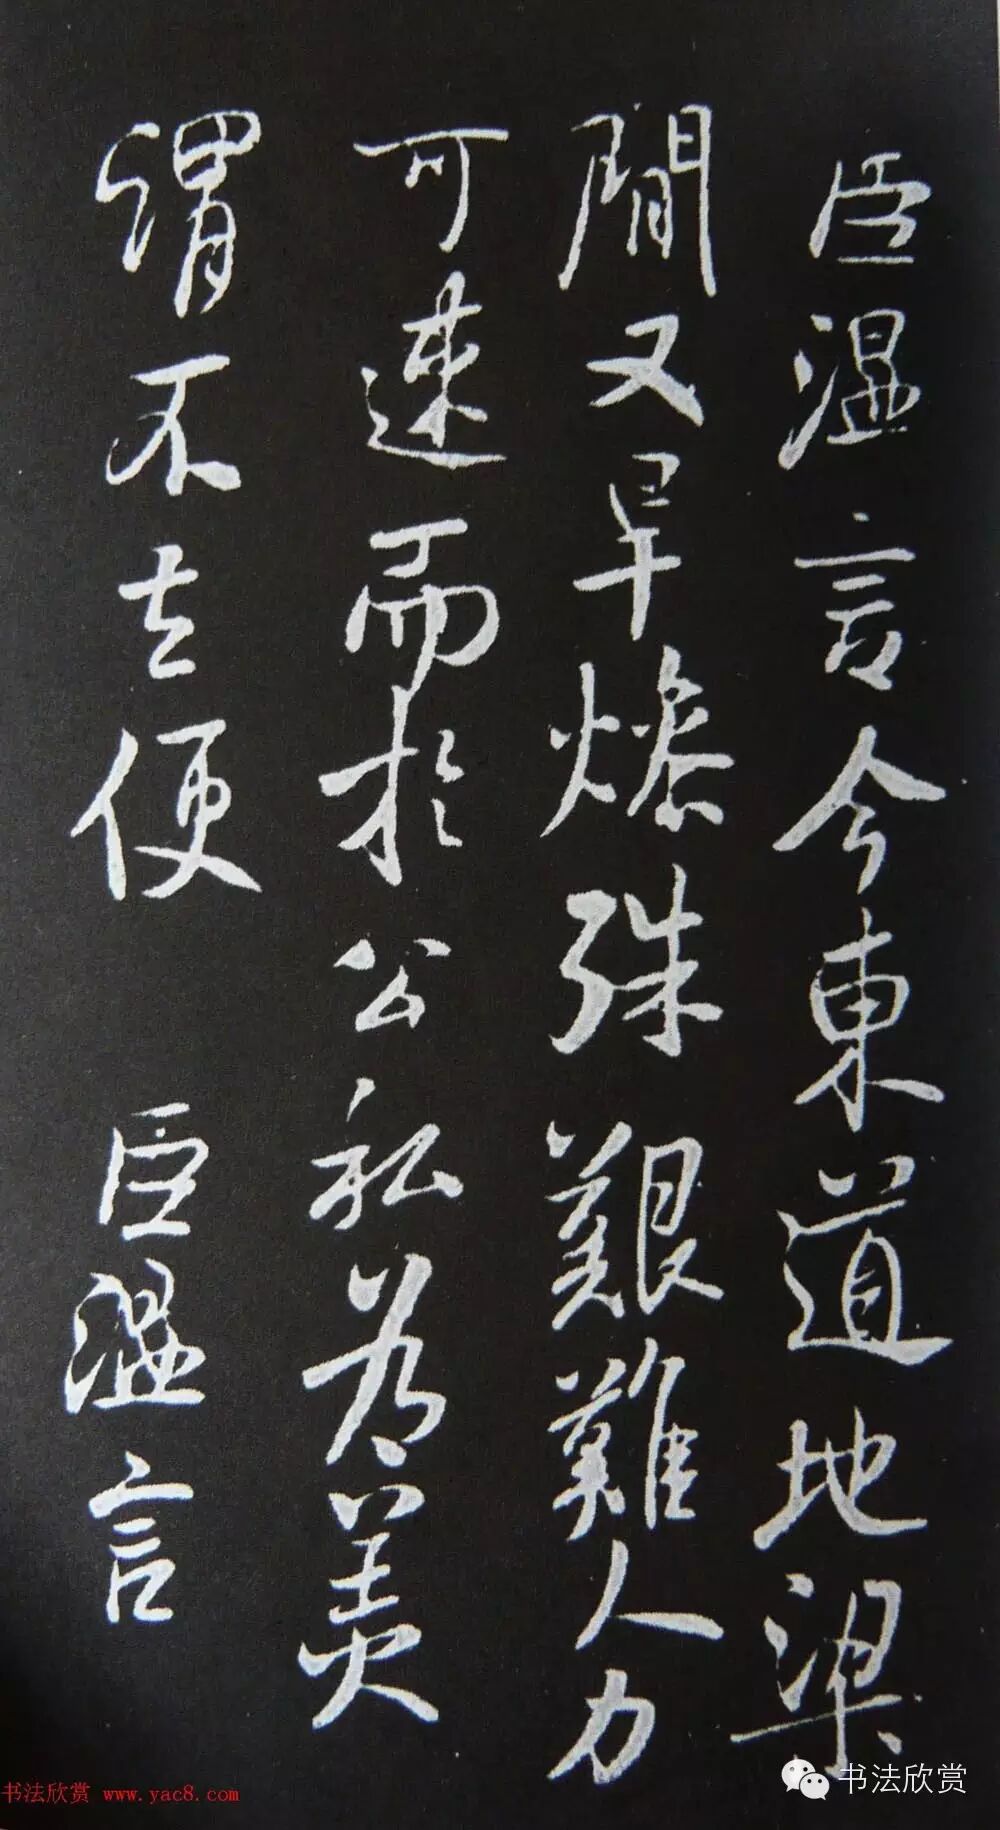 臣温言今東道地梁
間又旱燥殊艱難人力
可速而於公私為美
謂不去便 臣温言
书法欣赏 www.yac8.com
书法欣赏